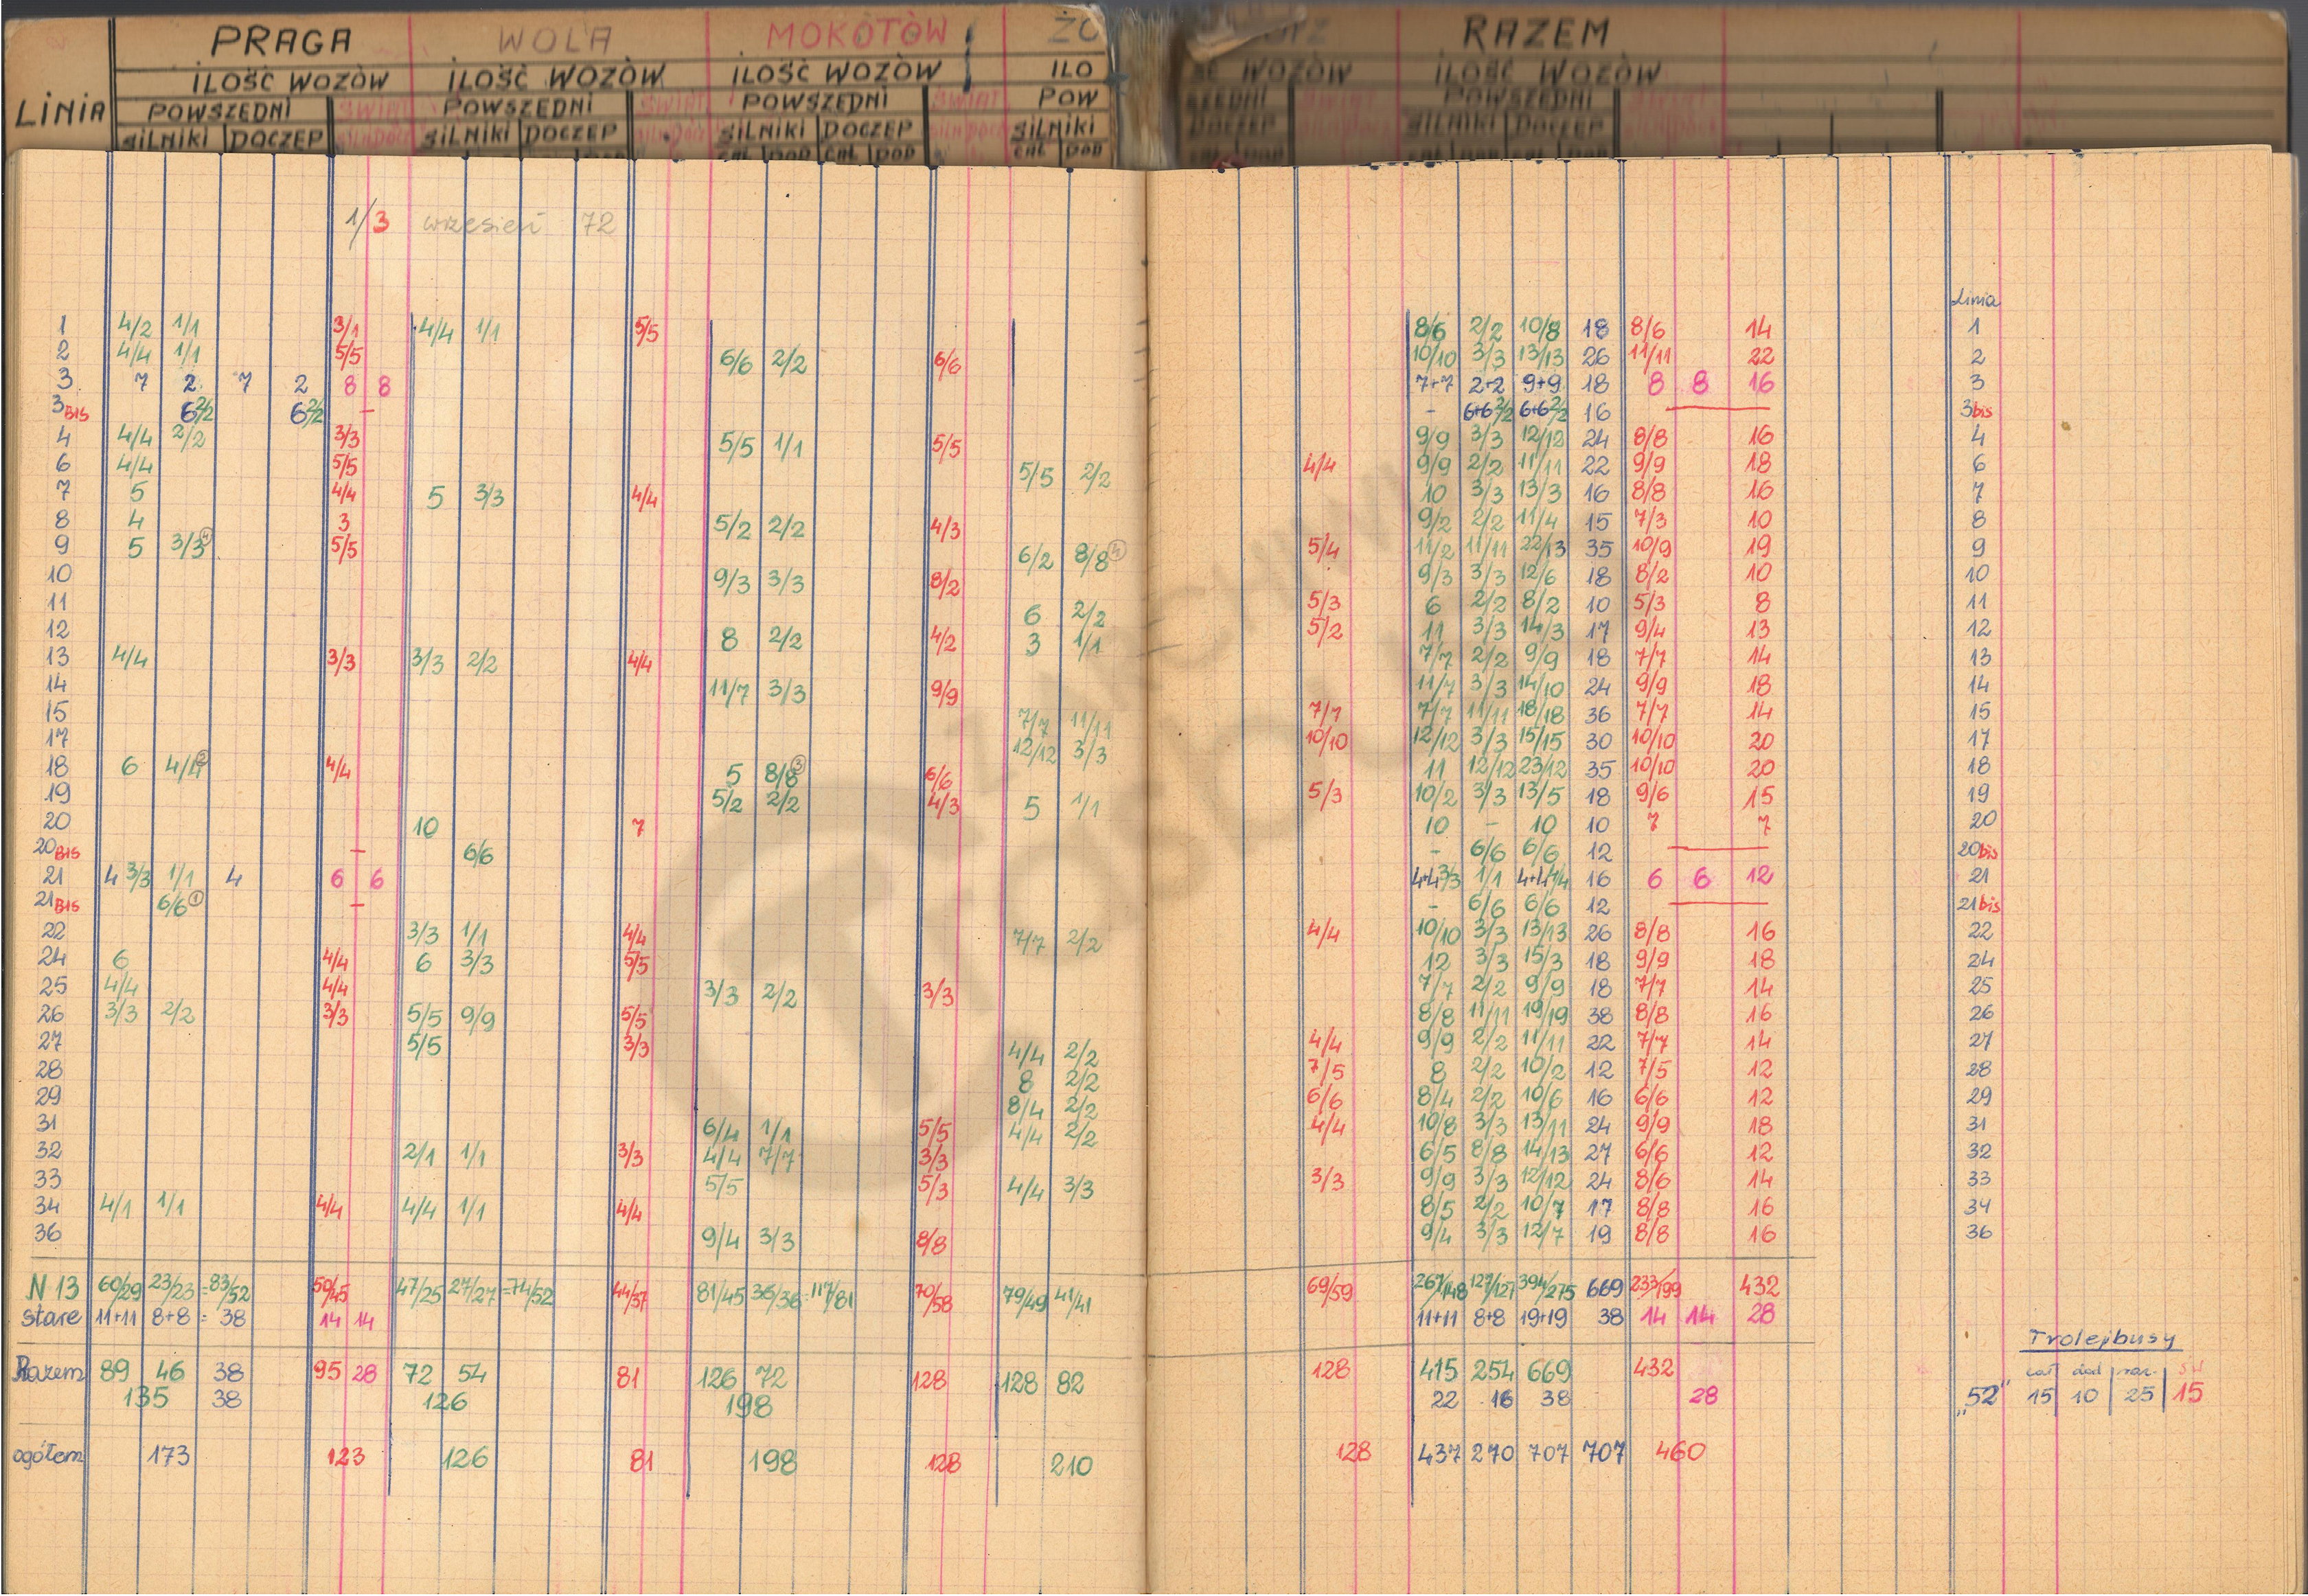 PRAGA WOLA MOKOTÓW ŻO RAZEM
ILOŚĆ WOZÓW ILOŚĆ WOZÓW ILOŚĆ WOZÓW ILO WOZÓW ILOŚĆ WOZÓW
LINIA POWSZEDNI ŚWIĄT POWSZEDNI ŚWIĄT POWSZEDNI ŚWIĄT POW POWSZEDNI
SILNIKI DOCZEP SILNIKI DOCZEP SILNIKI DOCZEP SILNIKI DOCZEP SILNIKI DOCZEP
CAŁ DOD CAŁ DOD CAŁ DOD
1/3 wrzesień 72
Linia
1 4/2 1/1 3/1 4/4 1/1 5/5 8/6 2/2 10/8 18 8/6 14 1
2 4/4 1/1 5/5 6/6 2/2 6/6 10/10 3/3 13/13 26 11/11 22 2
3 7 2 7 2 8 8 7+7 2+2 9+9 18 8 8 16 3
3BIS 6 2/2 6 2/2 - - 6+6 2/2 6+6 2/2 16 3bis
4 4/4 2/2 3/3 5/5 1/1 5/5 9/9 3/3 12/12 24 8/8 16 4
6 4/4 5/5 5/5 2/2 4/4 9/9 2/2 11/11 22 9/9 18 6
7 5 4/4 5 3/3 4/4 10 3/3 13/3 16 8/8 16 7
8 4 3 5/2 2/2 4/3 9/2 2/2 11/4 15 7/3 10 8
9 5 3/3 4 5/5 6/2 8/8 4 5/4 11/2 11/11 22/13 35 10/9 19 9
10 9/3 3/3 8/2 9/3 3/3 12/6 18 8/2 10 10
11 6 2/2 5/3 6 2/2 8/2 10 5/3 8 11
12 8 2/2 4/2 3 1/1 5/2 11 3/3 14/3 17 9/4 13 12
13 4/4 3/3 3/3 2/2 4/4 7/7 2/2 9/9 18 7/7 14 13
14 11/7 3/3 9/9 11/7 3/3 14/10 24 9/9 18 14
15 7/7 11/11 7/7 7/7 11/11 18/18 36 7/7 14 15
17 12/12 3/3 10/10 12/12 3/3 15/15 30 10/10 20 17
18 6 4/4 2 4/4 5 8/8 3 6/6 11 12/12 23/12 35 10/10 20 18
19 5/2 2/2 4/3 5 1/1 5/3 10/2 3/3 13/5 18 9/6 15 19
20 10 7 10 - 10 10 7 7 20
20BIS - 6/6 - 6/6 6/6 12 20bis
21 4 3/3 1/1 4 6 6 4+4 3/3 1/1 4+4 4/4 16 6 6 12 21
21BIS 6/6 1 - - 6/6 6/6 12 21bis
22 3/3 1/1 4/4 7/7 2/2 4/4 10/10 3/3 13/13 26 8/8 16 22
24 6 4/4 6 3/3 5/5 12 3/3 15/3 18 9/9 18 24
25 4/4 4/4 3/3 2/2 3/3 7/7 2/2 9/9 18 7/7 14 25
26 3/3 2/2 3/3 5/5 9/9 5/5 8/8 11/11 19/19 38 8/8 16 26
27 5/5 3/3 4/4 2/2 4/4 9/9 2/2 11/11 22 7/7 14 27
28 8 2/2 7/5 8 2/2 10/2 12 7/5 12 28
29 8/4 2/2 6/6 8/4 2/2 10/6 16 6/6 12 29
31 6/4 1/1 5/5 4/4 2/2 4/4 10/8 3/3 13/11 24 9/9 18 31
32 2/1 1/1 3/3 4/4 7/7 3/3 6/5 8/8 14/13 27 6/6 12 32
33 5/5 5/3 4/4 3/3 3/3 9/9 3/3 12/12 24 8/6 14 33
34 4/1 1/1 4/4 4/4 1/1 4/4 8/5 2/2 10/7 17 8/8 16 34
36 9/4 3/3 8/8 9/4 3/3 12/7 19 8/8 16 36
N 13 60/29 23/23 =83/52 50/45 47/25 27/27 =74/52 44/37 81/45 36/36 =117/81 70/58 79/49 41/41 69/59 267/148 127/127 394/275 669 233/199 432
stare 11+11 8+8 = 38 14 14 11+11 8+8 19+19 38 14 14 28
Razem 89 46 38 95 28 72 54 81 126 72 128 128 82 128 415 254 669 432
135 38 126 198 22 16 38 28
ogółem 173 123 126 81 198 128 210 128 437 270 707 707 460
Trolejbusy
cał dod raz. św
„52" 15 10 25 15